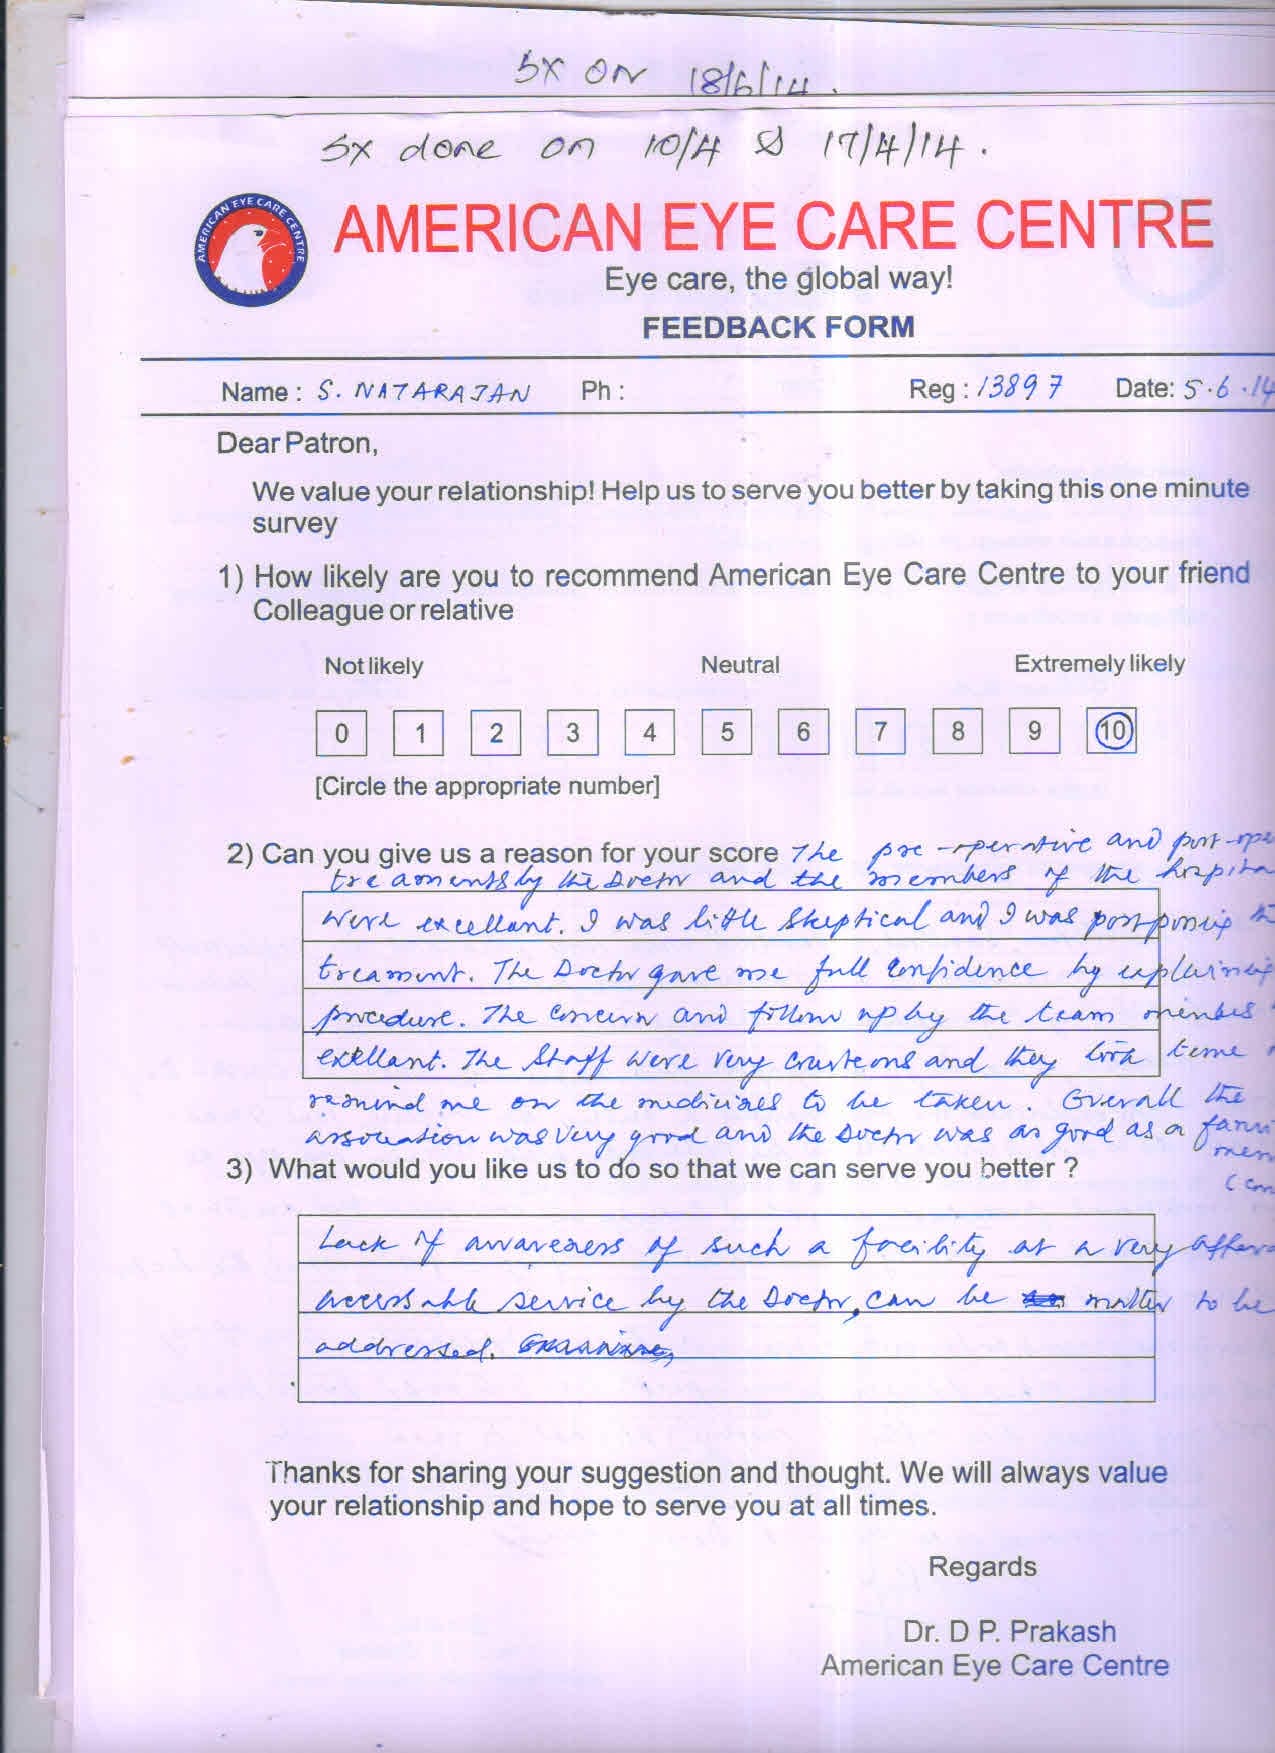 Sx ON 18/6/14.
Sx done on 10/4 & 17/4/14.
AMERICAN EYE CARE CENTRE
AMERICAN EYE CARE CENTRE
Eye care, the global way!
FEEDBACK FORM
Name : S. NATARAJAN Ph : Reg : 13897 Date: 5.6.14
Dear Patron,
We value your relationship! Help us to serve you better by taking this one minute
survey
1) How likely are you to recommend American Eye Care Centre to your friend
Colleague or relative
Not likely Neutral Extremely likely
0 1 2 3 4 5 6 7 8 9 10
[Circle the appropriate number]
2) Can you give us a reason for your score The pre-operative and post-ope
treaments by the Doctor and the members of the hospita
were excellant. I was little skeptical and I was postponing
treament. The Doctor gave me full confidence by explaining
procedure. The concern and follow up by the team
exellant. The Staff were very courteous and they took time
remind me on the medicines to be taken. Overall the
association was very good and the Doctor was as good as a fami
mem
3) What would you like us to do so that we can serve you better ?
Lack of awareness of such a facility at a very afford
service by the Doctor, can be matter to be
addressed.
Thanks for sharing your suggestion and thought. We will always value
your relationship and hope to serve you at all times.
Regards
Dr. D P. Prakash
American Eye Care Centre